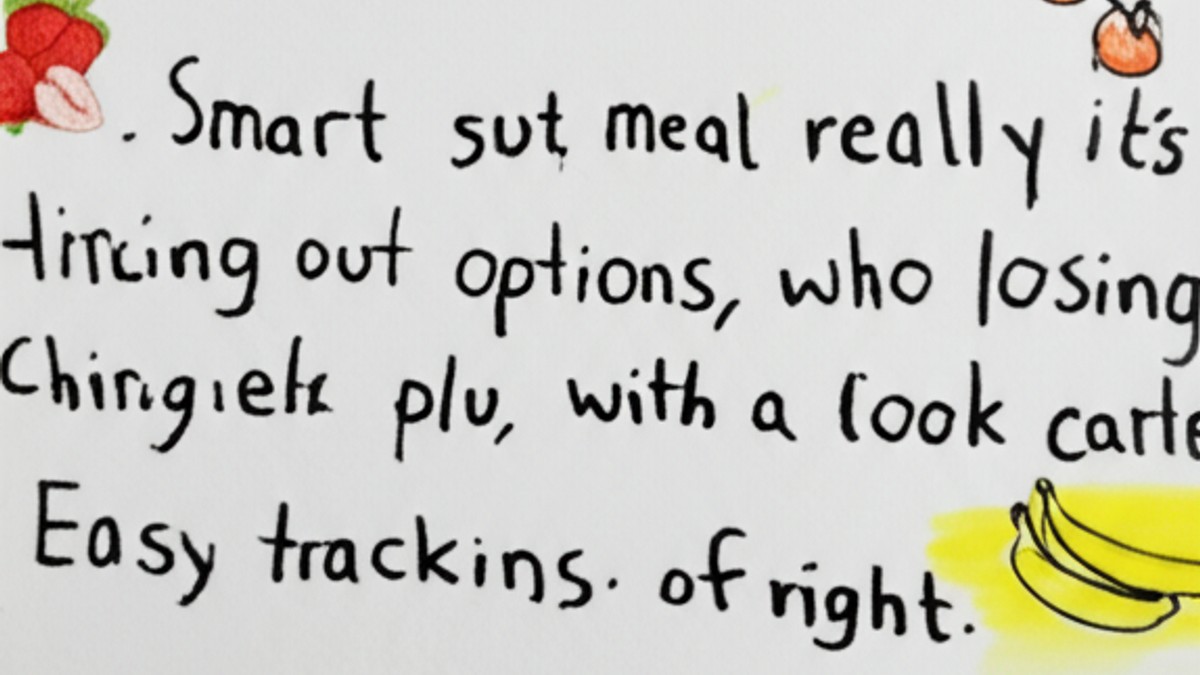 . Smart sut meal really it's
out options, who losing
plu, with a look carte
Easy trackins. of right.